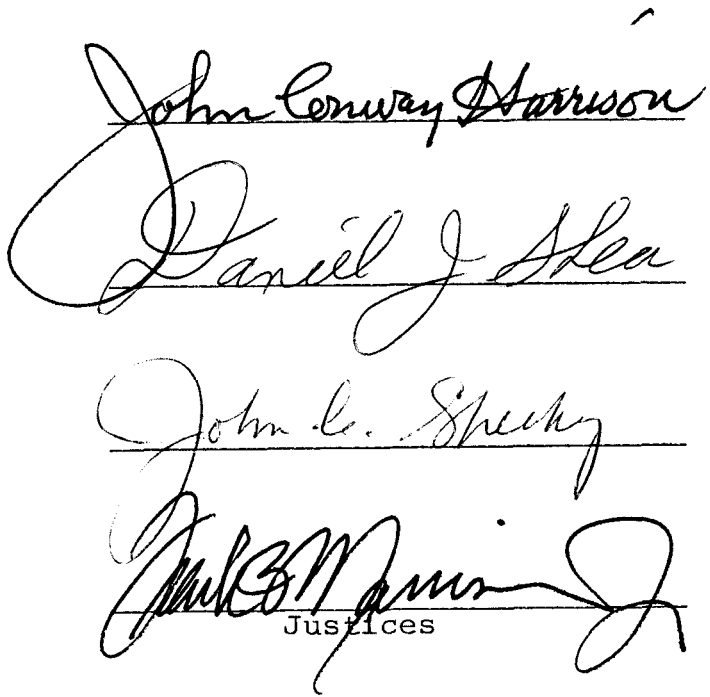 John Conway Harrison
Daniel J Shea
John C. Sheehy
Frank B Morrison Jr
Justices